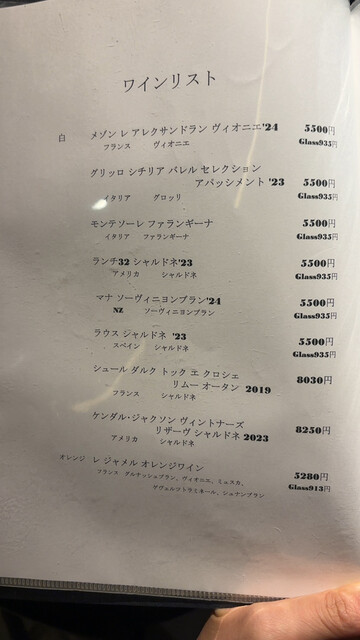 ワインリスト
白 メゾン レ アレクサンドラン ヴィオニエ'24 5500円
フランス ヴィオニエ Glass935円
グリッロ シチリア バレル セレクション
アパッシメント '23 5500円
イタリア グロッリ Glass935円
モンテソーレ ファランギーナ 5500円
イタリア ファランギーナ Glass935円
ランチ32 シャルドネ'23 5500円
アメリカ シャルドネ Glass935円
マナ ソーヴィニヨンブラン'24 5500円
NZ ソーヴィニヨンブラン Glass935円
ラウス ジャルドネ '23 5500円
スペイン シャルドネ Glass935円
シュール ダルク トック エ クロシェ 8030円
リムー オータン 2019
フランス シャルドネ
ケンダル・ジャクソン ヴィントナーズ 8250円
リザーヴ シャルドネ 2023
アメリカ シャルドネ
オレンジ レ ジャメル オレンジワイン 5280円
フランス グルナッシュブラン、ヴィオニエ、ミュスカ、 Glass913円
ゲヴェルツトラミネール、シュナンブラン